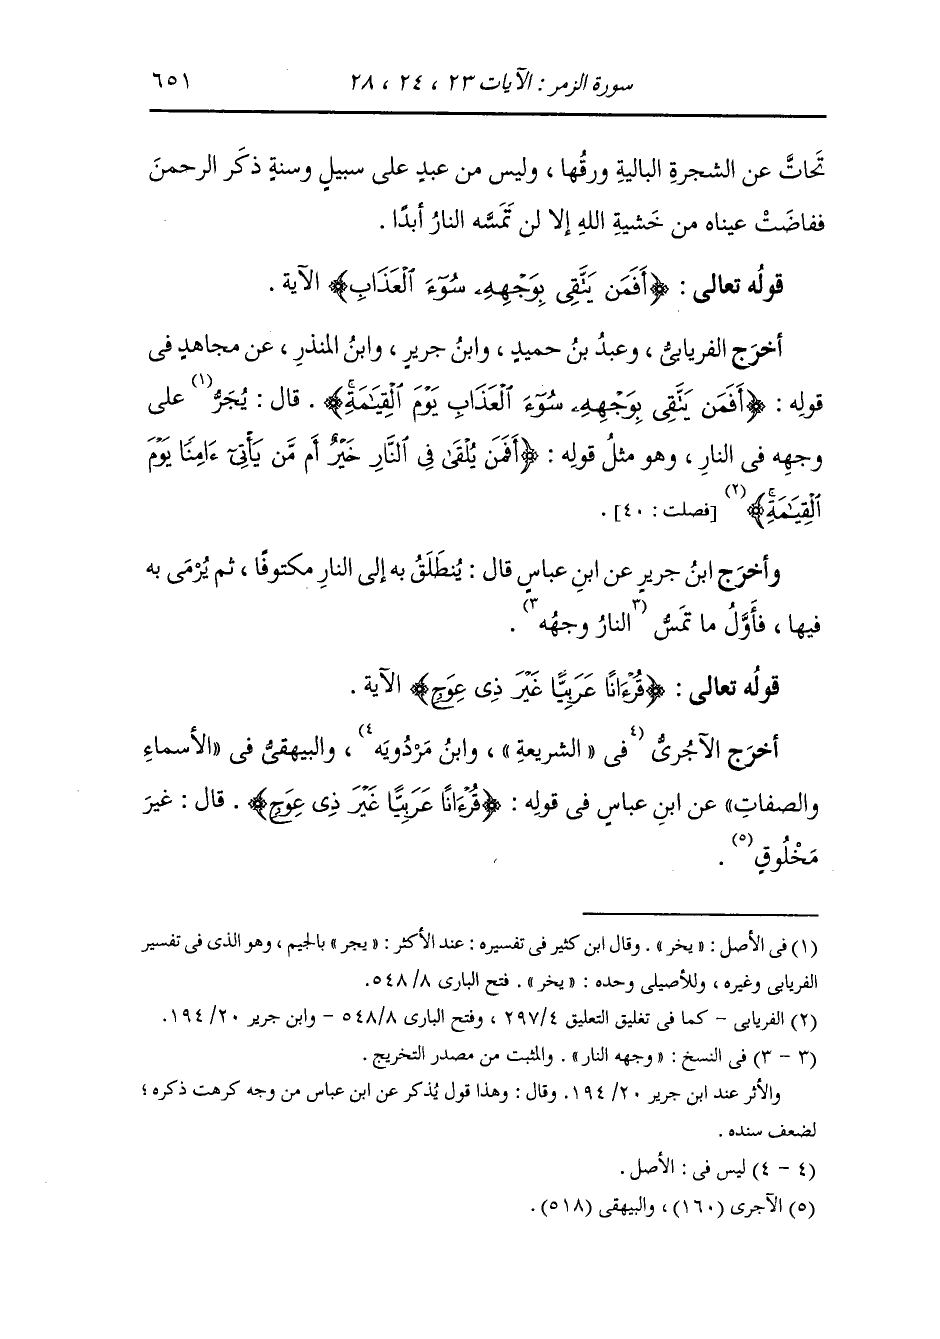 سورة الزمر : الآيات ٢٣ ، ٢٤ ، ٢٨ ٦٥١
تَحَاتَّ عن الشجرةِ الباليةِ ورقُها ، وليس من عبدٍ على سبيلٍ وسنةٍ ذكَر الرحمنَ
ففاضَتْ عيناه من خَشيةِ اللهِ إلا لن تَمَسَّه النارُ أبدًا .
قولُه تعالى : ﴿أَفَمَن يَتَّقِى بِوَجْهِهِۦ سُوٓءَ ٱلْعَذَابِ﴾ الآية .
أخرَج الفريابىُّ ، وعبدُ بنُ حميدٍ ، وابنُ جريرٍ ، وابنُ المنذرِ ، عن مجاهدٍ فى
قولِه : ﴿أَفَمَن يَتَّقِى بِوَجْهِهِۦ سُوٓءَ ٱلْعَذَابِ يَوْمَ ٱلْقِيَٰمَةِۚ﴾ . قال : يُجَرُّ(١) على
وجهِه فى النارِ ، وهو مثلُ قولِه : ﴿أَفَمَن يُلْقَىٰ فِى ٱلنَّارِ خَيْرٌ أَم مَّن يَأْتِىٓ ءَامِنًا يَوْمَ
ٱلْقِيَٰمَةِۚ﴾(٢) [فصلت : ٤٠] .
وأخرَج ابنُ جريرٍ عن ابنِ عباسٍ قال : يُنطَلَقُ به إلى النارِ مكتوفًا ، ثم يُرْمَى به
فيها ، فأَوَّلُ ما تَمَسُّ (٣النارُ وجهُه٣) .
قولُه تعالى : ﴿قُرْءَانًا عَرَبِيًّا غَيْرَ ذِى عِوَجٍ﴾ الآية .
أخرَج الآجُرىُّ (٤فى « الشريعةِ » ، وابنُ مَرْدُويَه٤) ، والبيهقىُّ فى «الأسماءِ
والصفاتِ» عن ابنِ عباسٍ فى قولِه : ﴿قُرْءَانًا عَرَبِيًّا غَيْرَ ذِى عِوَجٍ﴾ . قال : غيرَ
مَخْلُوقٍ(٥) .
(١) فى الأصل : « يخر » . وقال ابن كثير فى تفسيره : عند الأكثر : « يجر » بالجيم ، وهو الذى فى تفسير
الفريابى وغيره ، وللأصيلى وحده : « يخر » . فتح البارى ٥٤٨/٨.
(٢) الفريابى - كما فى تغليق التعليق ٢٩٧/٤ ، وفتح البارى ٥٤٨/٨ - وابن جرير ١٩٤/٢٠.
(٣ - ٣) فى النسخ : « وجهه النار» . والمثبت من مصدر التخريج .
والأثر عند ابن جرير ١٩٤/٢٠. وقال : وهذا قول يُذكر عن ابن عباس من وجه كرهت ذكره ؛
لضعف سنده .
(٤ - ٤) ليس فى : الأصل .
(٥) الآجرى (١٦٠) ، والبيهقى (٥١٨) .